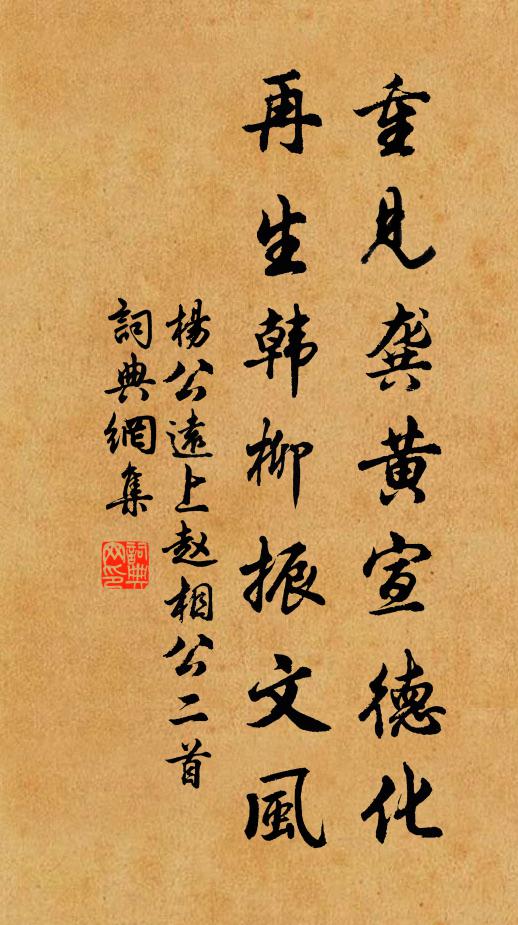 重見龔黃宣德化
再生韓柳振文風
楊公遠上趙相公二首
詞典網集
詞典
网印